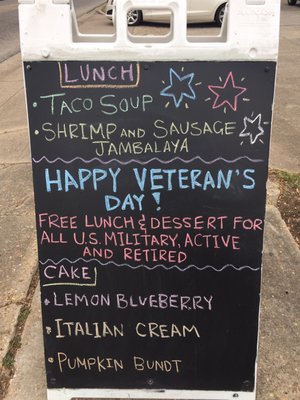 LUNCH
· TACO SOUP
· SHRIMP AND SAUSAGE
JAMBALAYA
HAPPY VETERAN'S
DAY!
FREE LUNCH & DESSERT FOR
ALL U.S. MILITARY, ACTIVE
AND RETIRED
CAKE
· LEMON BLUEBERRY
· ITALIAN CREAM
· PUMPKIN BUNDT